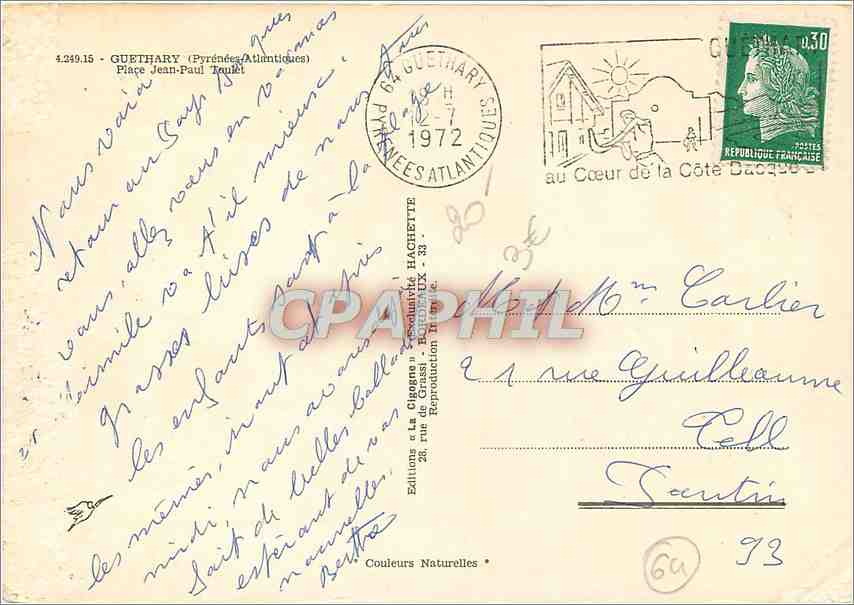 4.249.15 - GUETHARY (Pyrénées-Atlantiques)
Place Jean-Paul Toulet
Nous voici de
retour au Pays Basque
vous, allez vous en vacances
Camille va t'il mieux,
grosses bises de nous tous
les enfants sont à la plage
les mêmes, vont
midi, nous avons
fait de belles ballades
espérant de vos
nouvelles.
Berthe
64 GUETHARY
18 H
12-7
1972
PYRENEES ATLANTIQUES
GUETHARY
au Cœur de la Côte Basque
0,30
POSTES
REPUBLIQUE FRANÇAISE
20
3€
Editions « La Cigogne » - Exclusivité HACHETTE
28, rue de Grassi - BORDEAUX - 33 -
Reproduction Interdite.
CPAPHIL
M et Mme Carlier
21 rue Guilleaume
Tell
Pantin
93
64
Couleurs Naturelles *